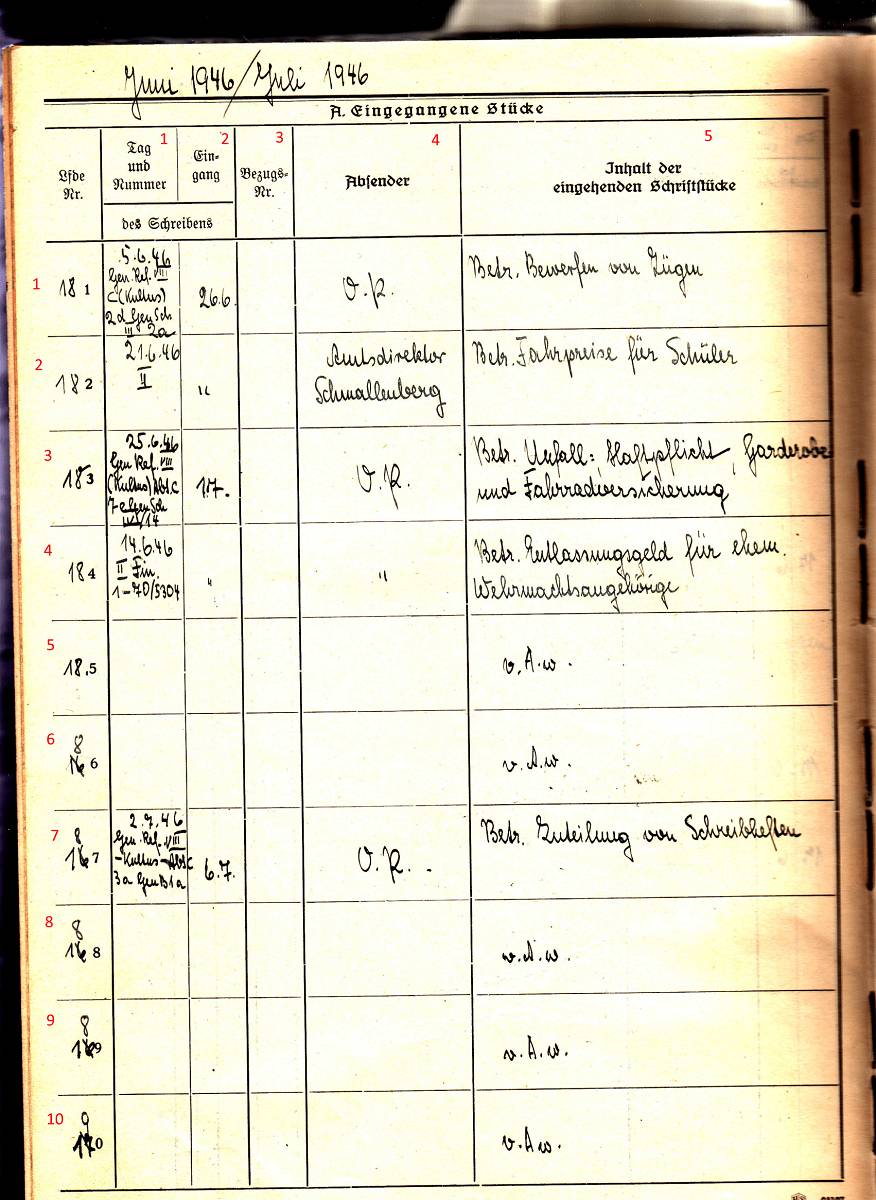 Juni 1946/Juli 1946
A. Eingegangene Stücke
1 2 3 4 5
Lfde Nr.
Tag und Nummer
Ein-gang
des Schreibens
Bezugs-Nr.
Absender
Inhalt der eingehenden Schriftstücke
1
181
5.6.46
Gen. Ref. VIII
C (Kultus)
2d Gen Sch
III 2a
26.6.
O.P.
Betr. Bewerfen von Zügen
2
182
21.6.46
II
"
Amtsdirektor
Schmallenberg
Betr. Fahrpreise für Schüler
3
183
25.6.46
Gen Ref. VIII
(Kultus) Abt. C
7e Gen Sch
1.7.
O.P.
Betr. Unfall: Haftpflicht, Garderobe
und Fahrradversicherung
4
184
14.6.46
II Fin.
1-70/5304
"
"
Betr. Entlassungsgeld für ehem.
Wehrmachtsangehörige
5
18.5
v.A.w.
6
8
6
v.A.w.
7
8
7
2.7.46
Gen. Ref. VIII
-Kultus- Abt. C
3a Gen B 1a
6.7.
O.P.
Betr. Zuteilung von Schreibheften
8
8
8
v.A.w.
9
8
9
v.A.w.
10
9
0
v.A.w.